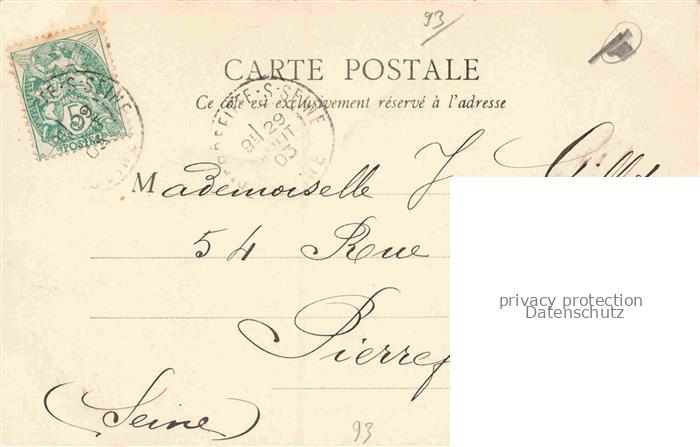 93
CARTE POSTALE
Ce côté est exclusivement réservé à l'adresse
5
POSTES
E-S-SEINE
PIERREFITTE-S-SEINE
9E 29
AOUT
03
Mademoiselle J.
54 Rue
Pierref
(Seine)
93
privacy protection
Datenschutz